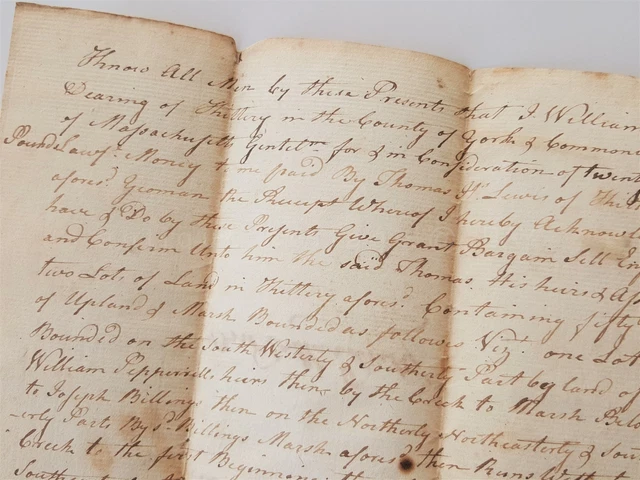 Know All Men by these Presents that I William
Dearing of Kittery in the County of York & Common
of Massachusetts Gentlmn for & in Consideration of twent
Pounds Lawfl. Money to me paid By Thomas Lewis of
aforesd. Yeoman the Receipt Whereof I hereby Acknowl
have & Do by these Presents Give Grant Bargain Sell En
and Confirm Unto him the said Thomas His heirs & As
two Lots of Land in Kittery aforesd. Containing fifty
of Upland & Marsh Bounded as follows Viz: one Lot
Bounded on the South Westerly & Southerly Part by land of
William Pepperrells heirs then by the Creek to Marsh Belo
to Joseph Billings then on the Northerly Northeasterly & Sou
-erly Parts By sd. Billings Marsh aforesd then Runs
Creek to the first Beginning